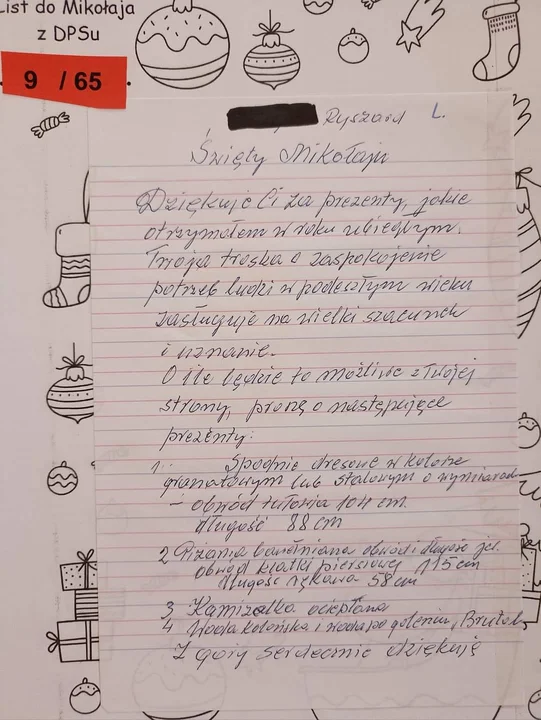 List do Mikołaja
z DPSu
9 / 65
Ryszard L.
Święty Mikołaju
Dziękuję Ci za prezenty, jakie
otrzymałem w roku ubiegłym.
Twoja troska o zaspokojenie
potrzeb ludzi w podeszłym wieku
zasługuje na wielki szacunek
i uznanie.
O ile będzie to możliwe z Twojej
strony, proszę o następujące
prezenty:
1. Spodnie dresowe w kolorze
granatowym lub stalowym o wymiarach
- obwód tułowia 104 cm.
długość 88 cm
2 Piżama bawełniana obwód i długość
obwód klatki piersiowej 115 cm
długość rękawa 58 cm
3 Kamizelka ocieplana
4 Woda kolońska i woda po goleniu "Brutal"
Z góry serdecznie dziękuję